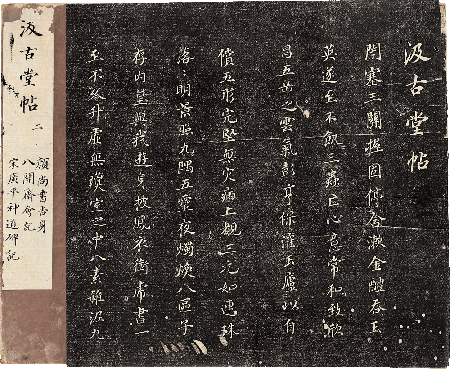 汲古堂帖
閉塞三關握固停含漱金醴吞玉
英遂至不飢三蟲亡心意常和致欣
昌五岳之雲氣彭亨保灌玉廬以自
償五形完堅無災殃上覩三光如連珠
落〻明景照九隅五靈夜燭煥八區子
存内皇與我遊身披鳳衣銜虎一
至不久升虛無瓊室之中八素
汲古堂帖 二
顏尚書告身
八關齋會記
宋廣平神道碑記